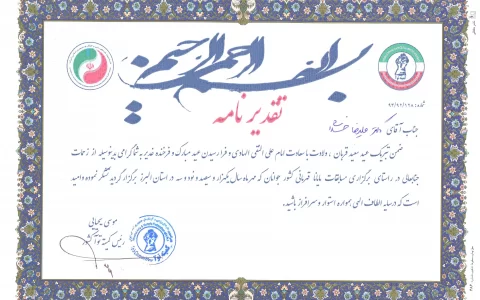 بسم الله الرحمن الرحیم
تقدیر نامه
جناب آقای دکتر علیرضا
ضمن تبریک عید سعید قربان ، ولادت با سعادت امام علی النقی الهادی و فرا رسیدن عید مبارک و فرخنده غدیر به شما گرامی بدینوسیله از زحمات
جنابعالی در راستای برگزاری مسابقات قهرمانی کشور جوانان که مهر ماه سال یکهزار و سیصد و نود و سه در استان البرز برگزار گردید تشکر نموده و امید
است که در سایه الطاف الهی همواره استوار و سرافراز باشید.
موسی
رئیس کمیته کشور